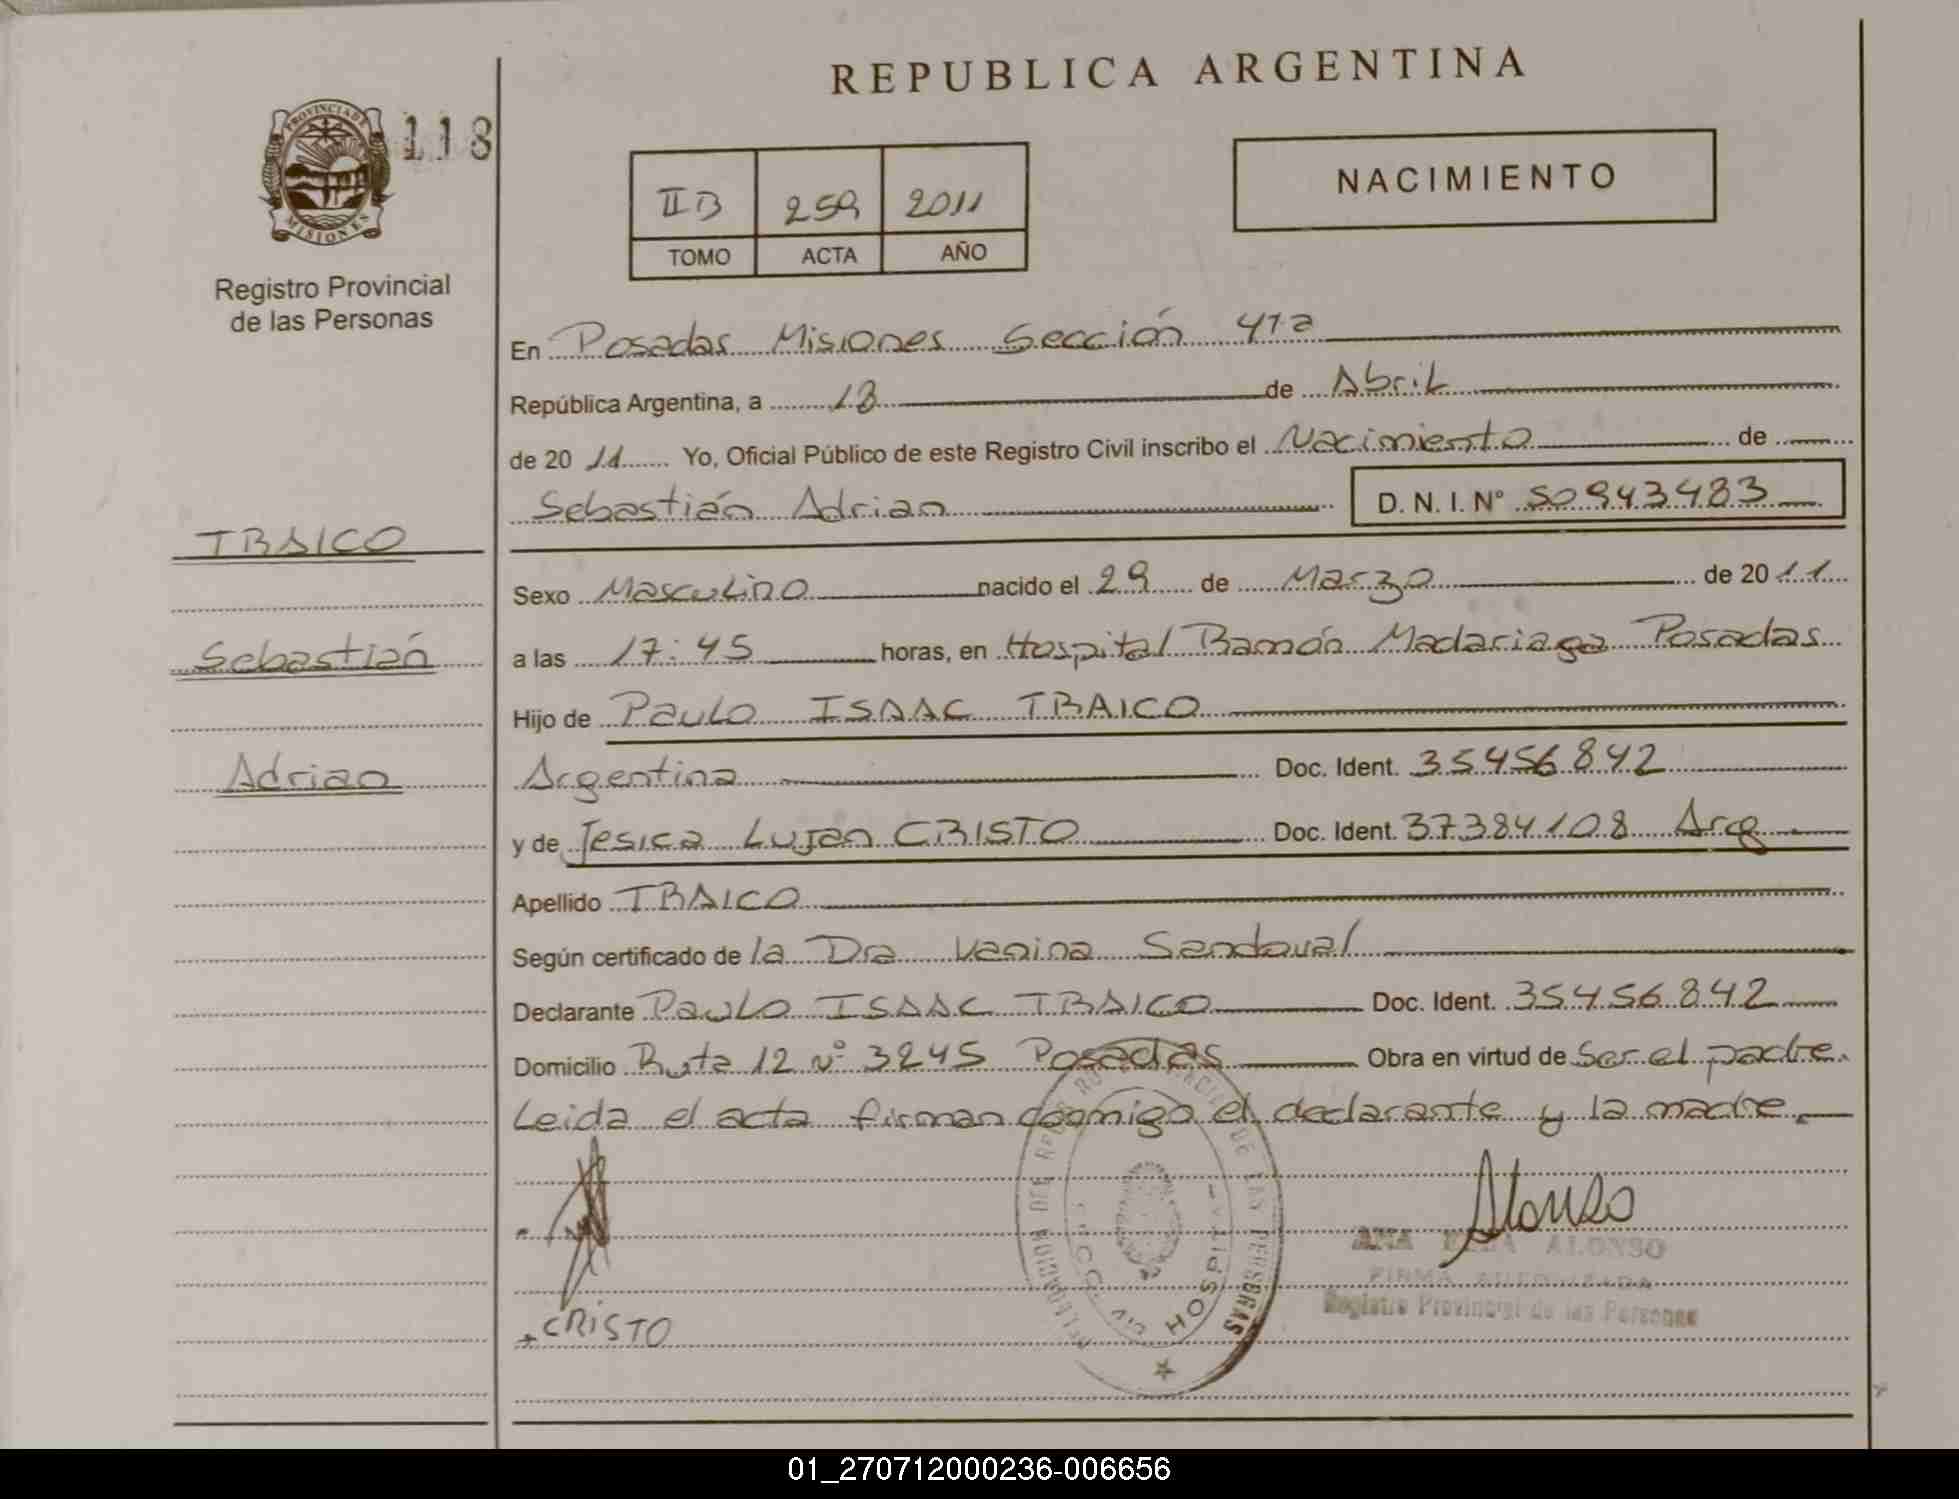 REPUBLICA ARGENTINA
PROVINCIA DE
MISIONES
118
Registro Provincial
de las Personas
NACIMIENTO
II B 259 2011
TOMO ACTA AÑO
En Posadas Misiones Sección 4ta
República Argentina, a 13 de Abril
de 20 11 Yo, Oficial Público de este Registro Civil inscribo el Nacimiento de
Sebastián Adrian D. N. I. N° 50943483
TRAICO
Sebastián
Adrian
Sexo Masculino nacido el 29 de Marzo de 20 11
a las 17:45 horas, en Hospital Ramón Madariaga Posadas
Hijo de Paulo ISAAC TRAICO
Argentina Doc. Ident. 35456842
y de Jesica Lujan CRISTO Doc. Ident. 37384108 Arg
Apellido TRAICO
Según certificado de la Dra Vanina Sandoval
Declarante Paulo ISAAC TRAICO Doc. Ident. 35456842
Domicilio Ruta 12 n° 3245 Posadas Obra en virtud de Ser el padre.
Leida el acta firman conmigo el declarante y la madre.
Alonso
ANA ALONSO
FIRMA AUTORIZADA
Registro Provincial de las Personas
CRISTO
DELEGACION DEL DE LAS PERSONAS
HOSPITAL
01_270712000236-006656